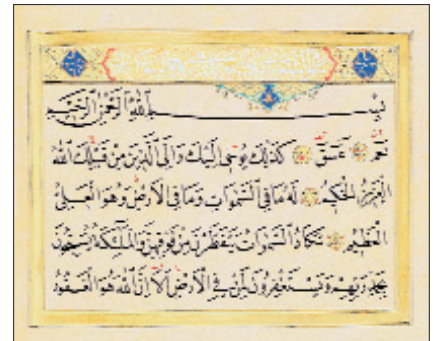 بسم الله الرحمن الرحيم
حم عسق كذلك يوحى اليك والى الذين من قبلك الله
العزيز الحكيم له ما في السموات وما في الارض وهو العلى
العظيم تكاد السموات يتفطرن من فوقهن والملئكة يسبحون
بحمد ربهم ويستغفرون لمن في الارض الا ان الله هو الغفور